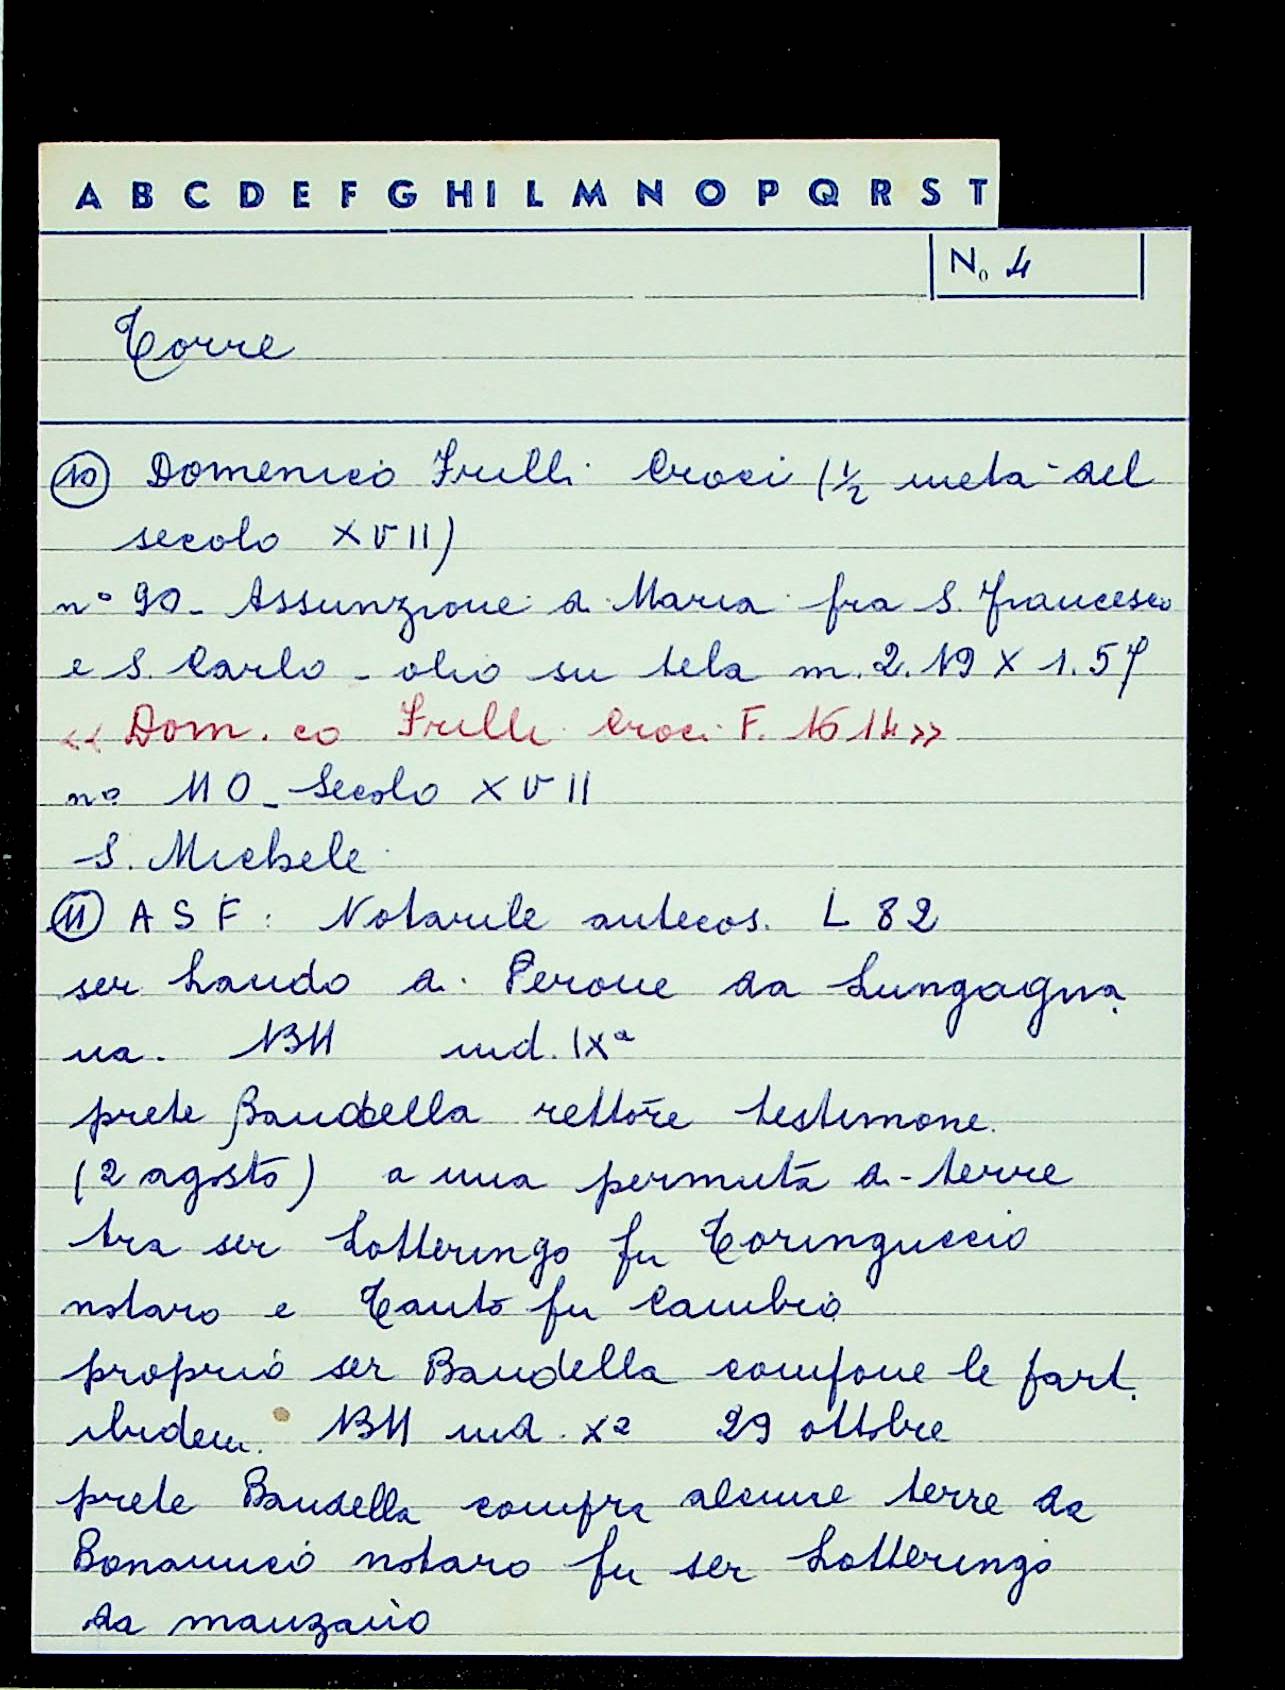 A B C D E F G H I L M N O P Q R S T
No 4
Torre
10 Domenico Frulli Croci (1/2 metà del
secolo XVII)
n° 90 - Assunzione di Maria fra S. Francesco
e S. Carlo - olio su tela m. 2.19 X 1.57
<< Dom.co Frulli Croci F. 1614 >>
n° 110 - Secolo XVII
S. Michele
11 A S F: Notarile antecos. L 82
ser Lando di Perone da Lungagna
na. 1311 ind. IXa
prete Baudella rettore testimone
(2 agosto) a una permuta di terre
tra ser Lotteringo fu Toringuccio
notaro e Tanto fu Cambio
proprio ser Baudella compone le part.
ibidem. 1311 ind. Xa 29 ottobre
prete Baudella compra alcune terre da
Bonanuccio notaro fu ser Lotteringo
da manzano